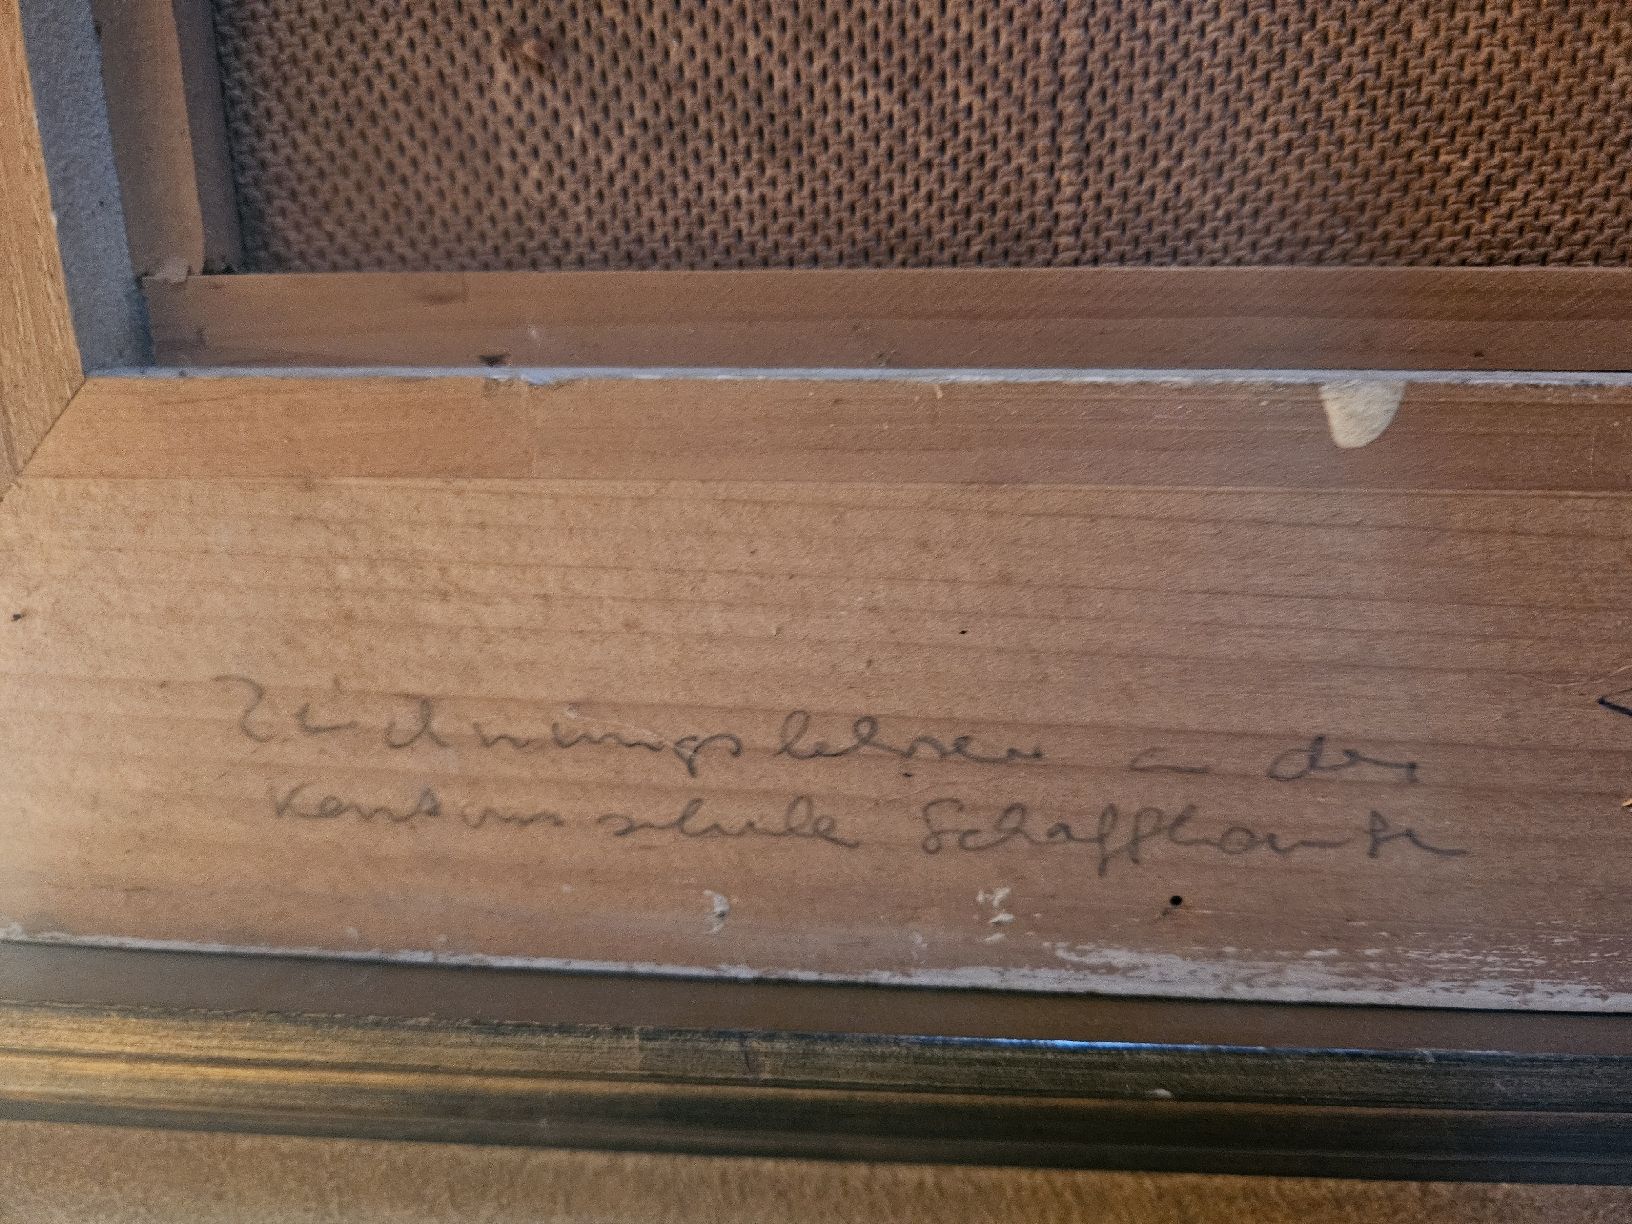 Zeichnungslehrer a der
Kantonsschule Schaffhausen